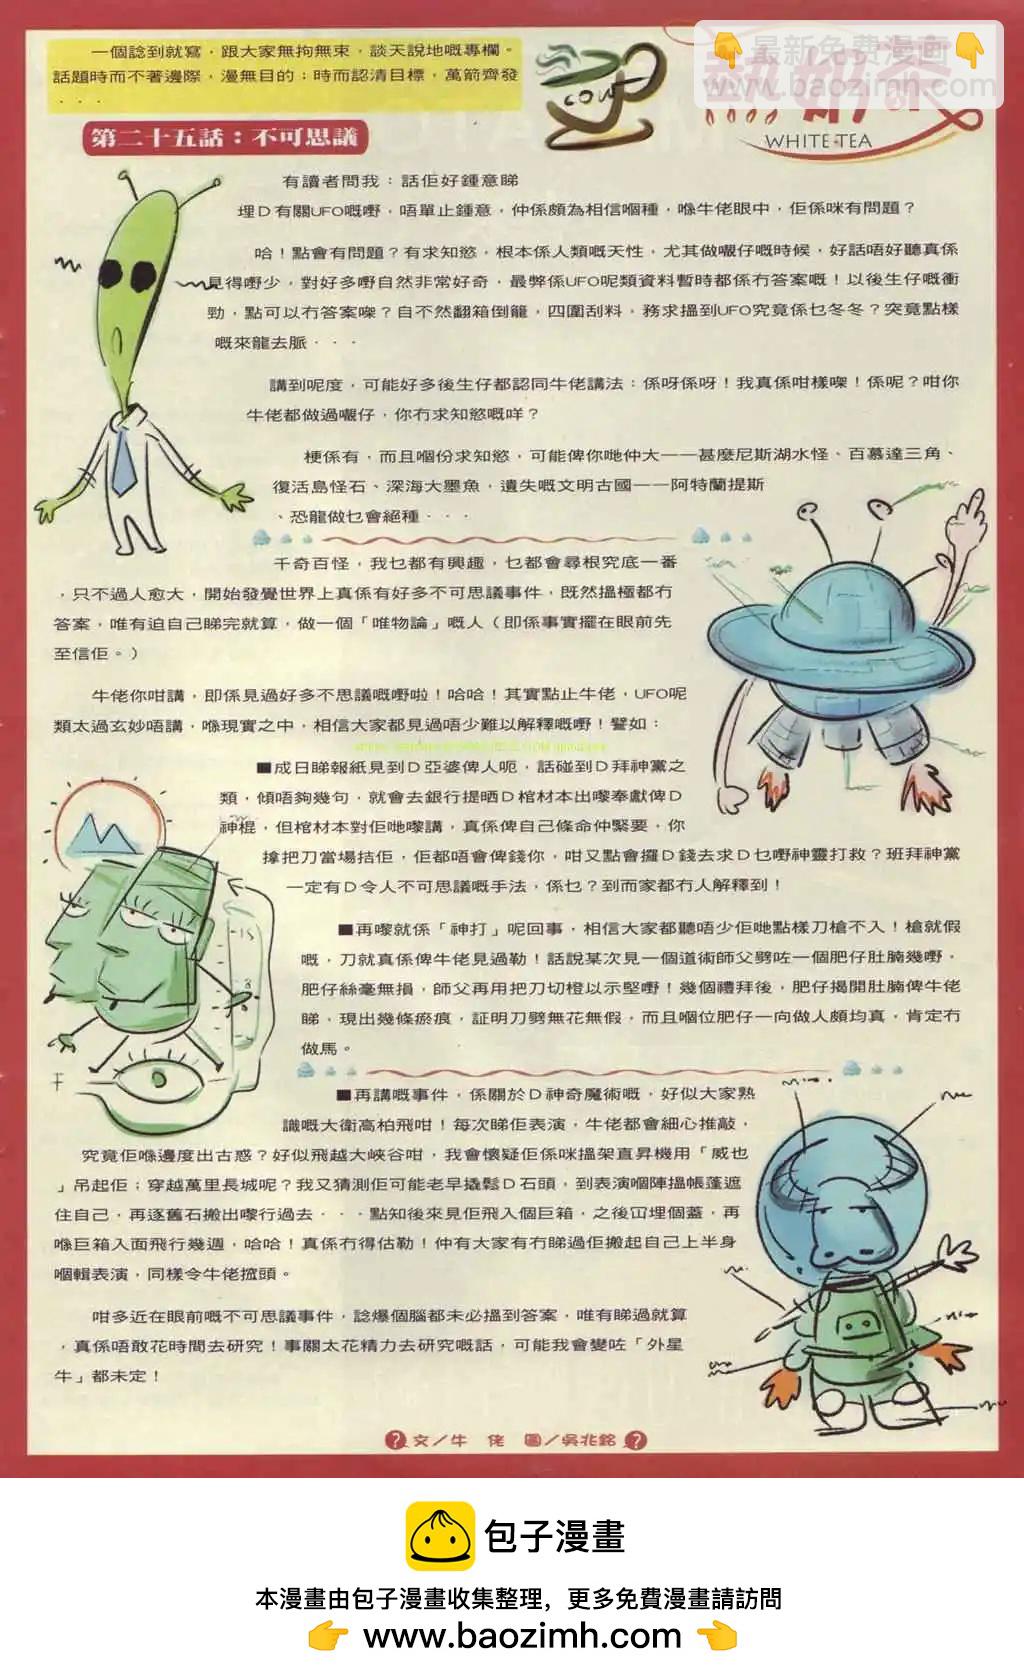 一個諗到就寫，跟大家無拘無束，談天說地嘅專欄。
話題時而不著邊際，漫無目的；時而認清目標，萬箭齊發
．．．
最新免费漫画
www.baozimh.com
COW
奶茶
WHITE TEA
第二十五話：不可思議
有讀者問我：話佢好鍾意睇
埋D有關UFO嘅嘢，唔單止鍾意，仲係頗為相信嗰種，喺牛佬眼中，佢係咪有問題？
哈！點會有問題？有求知慾，根本係人類嘅天性，尤其做𡃁仔嘅時候，好話唔好聽真係
見得嘢少，對好多嘢自然非常好奇，最弊係UFO呢類資料暫時都係冇答案嘅！以後生仔嘅衝
勁，點可以冇答案㗎？自不然翻箱倒籠，四圍刮料，務求搵到UFO究竟係乜冬冬？突竟點樣
嘅來龍去脈．．．
講到呢度，可能好多後生仔都認同牛佬講法：係呀係呀！我真係咁樣㗎！係呢？咁你
牛佬都做過𡃁仔，你冇求知慾嘅咩？
梗係有，而且嗰份求知慾，可能俾你哋仲大——甚麼尼斯湖水怪、百慕達三角、
復活島怪石、深海大墨魚，遺失嘅文明古國——阿特蘭提斯
、恐龍做乜會絕種．．．
千奇百怪，我乜都有興趣，乜都會尋根究底一番
，只不過人愈大，開始發覺世界上真係有好多不可思議事件，既然搵極都冇
答案，唯有迫自己睇完就算，做一個「唯物論」嘅人（即係事實擺在眼前先
至信佢。）
牛佬你咁講，即係見過好多不思議嘅嘢啦！哈哈！其實點止牛佬，UFO呢
類太過玄妙唔講，喺現實之中，相信大家都見過唔少難以解釋嘅嘢！譬如：
■成日睇報紙見到D亞婆俾人呃，話碰到D拜神黨之
類，傾唔夠幾句，就會去銀行提晒D棺材本出嚟奉獻俾D
神棍，但棺材本對佢哋嚟講，真係俾自己條命仲緊要，你
揸把刀當場拮佢，佢都唔會俾錢你，咁又點會攞D錢去求D乜嘢神靈打救？班拜神黨
一定有D令人不可思議嘅手法，係乜？到而家都冇人解釋到！
■再嚟就係「神打」呢回事，相信大家都聽唔少佢哋點樣刀槍不入！槍就假
嘅，刀就真係俾牛佬見過勒！話說某次見一個道術師父劈咗一個肥仔肚腩幾嘢，
肥仔絲毫無損，師父再用把刀切橙以示堅嘢！幾個禮拜後，肥仔揭開肚腩俾牛佬
睇，現出幾條瘀痕，証明刀劈無花無假，而且嗰位肥仔一向做人頗均真，肯定冇
做馬。
■再講嘅事件，係關於D神奇魔術嘅，好似大家熟
識嘅大衛高柏飛咁！每次睇佢表演，牛佬都會細心推敲，
究竟佢喺邊度出古惑？好似飛越大峽谷咁，我會懷疑佢係咪搵架直昇機用「威也
」吊起佢；穿越萬里長城呢？我又猜測佢可能老早撬鬆D石頭，到表演嗰陣搵帳蓬遮
住自己，再逐舊石搬出嚟行過去．．．點知後來見佢飛入個巨箱，之後冚埋個蓋，再
喺巨箱入面飛行幾週，哈哈！真係冇得估勒！仲有大家有冇睇過佢搬起自己上半身
嗰輯表演，同樣令牛佬搲頭。
咁多近在眼前嘅不可思議事件，諗爆個腦都未必搵到答案，唯有睇過就算
，真係唔敢花時間去研究！事關太花精力去研究嘅話，可能我會變咗「外星
牛」都未定！
?文／牛 佬 圖／吳兆銘?
包子漫畫
本漫畫由包子漫畫收集整理，更多免費漫畫請訪問
👉 www.baozimh.com 👈